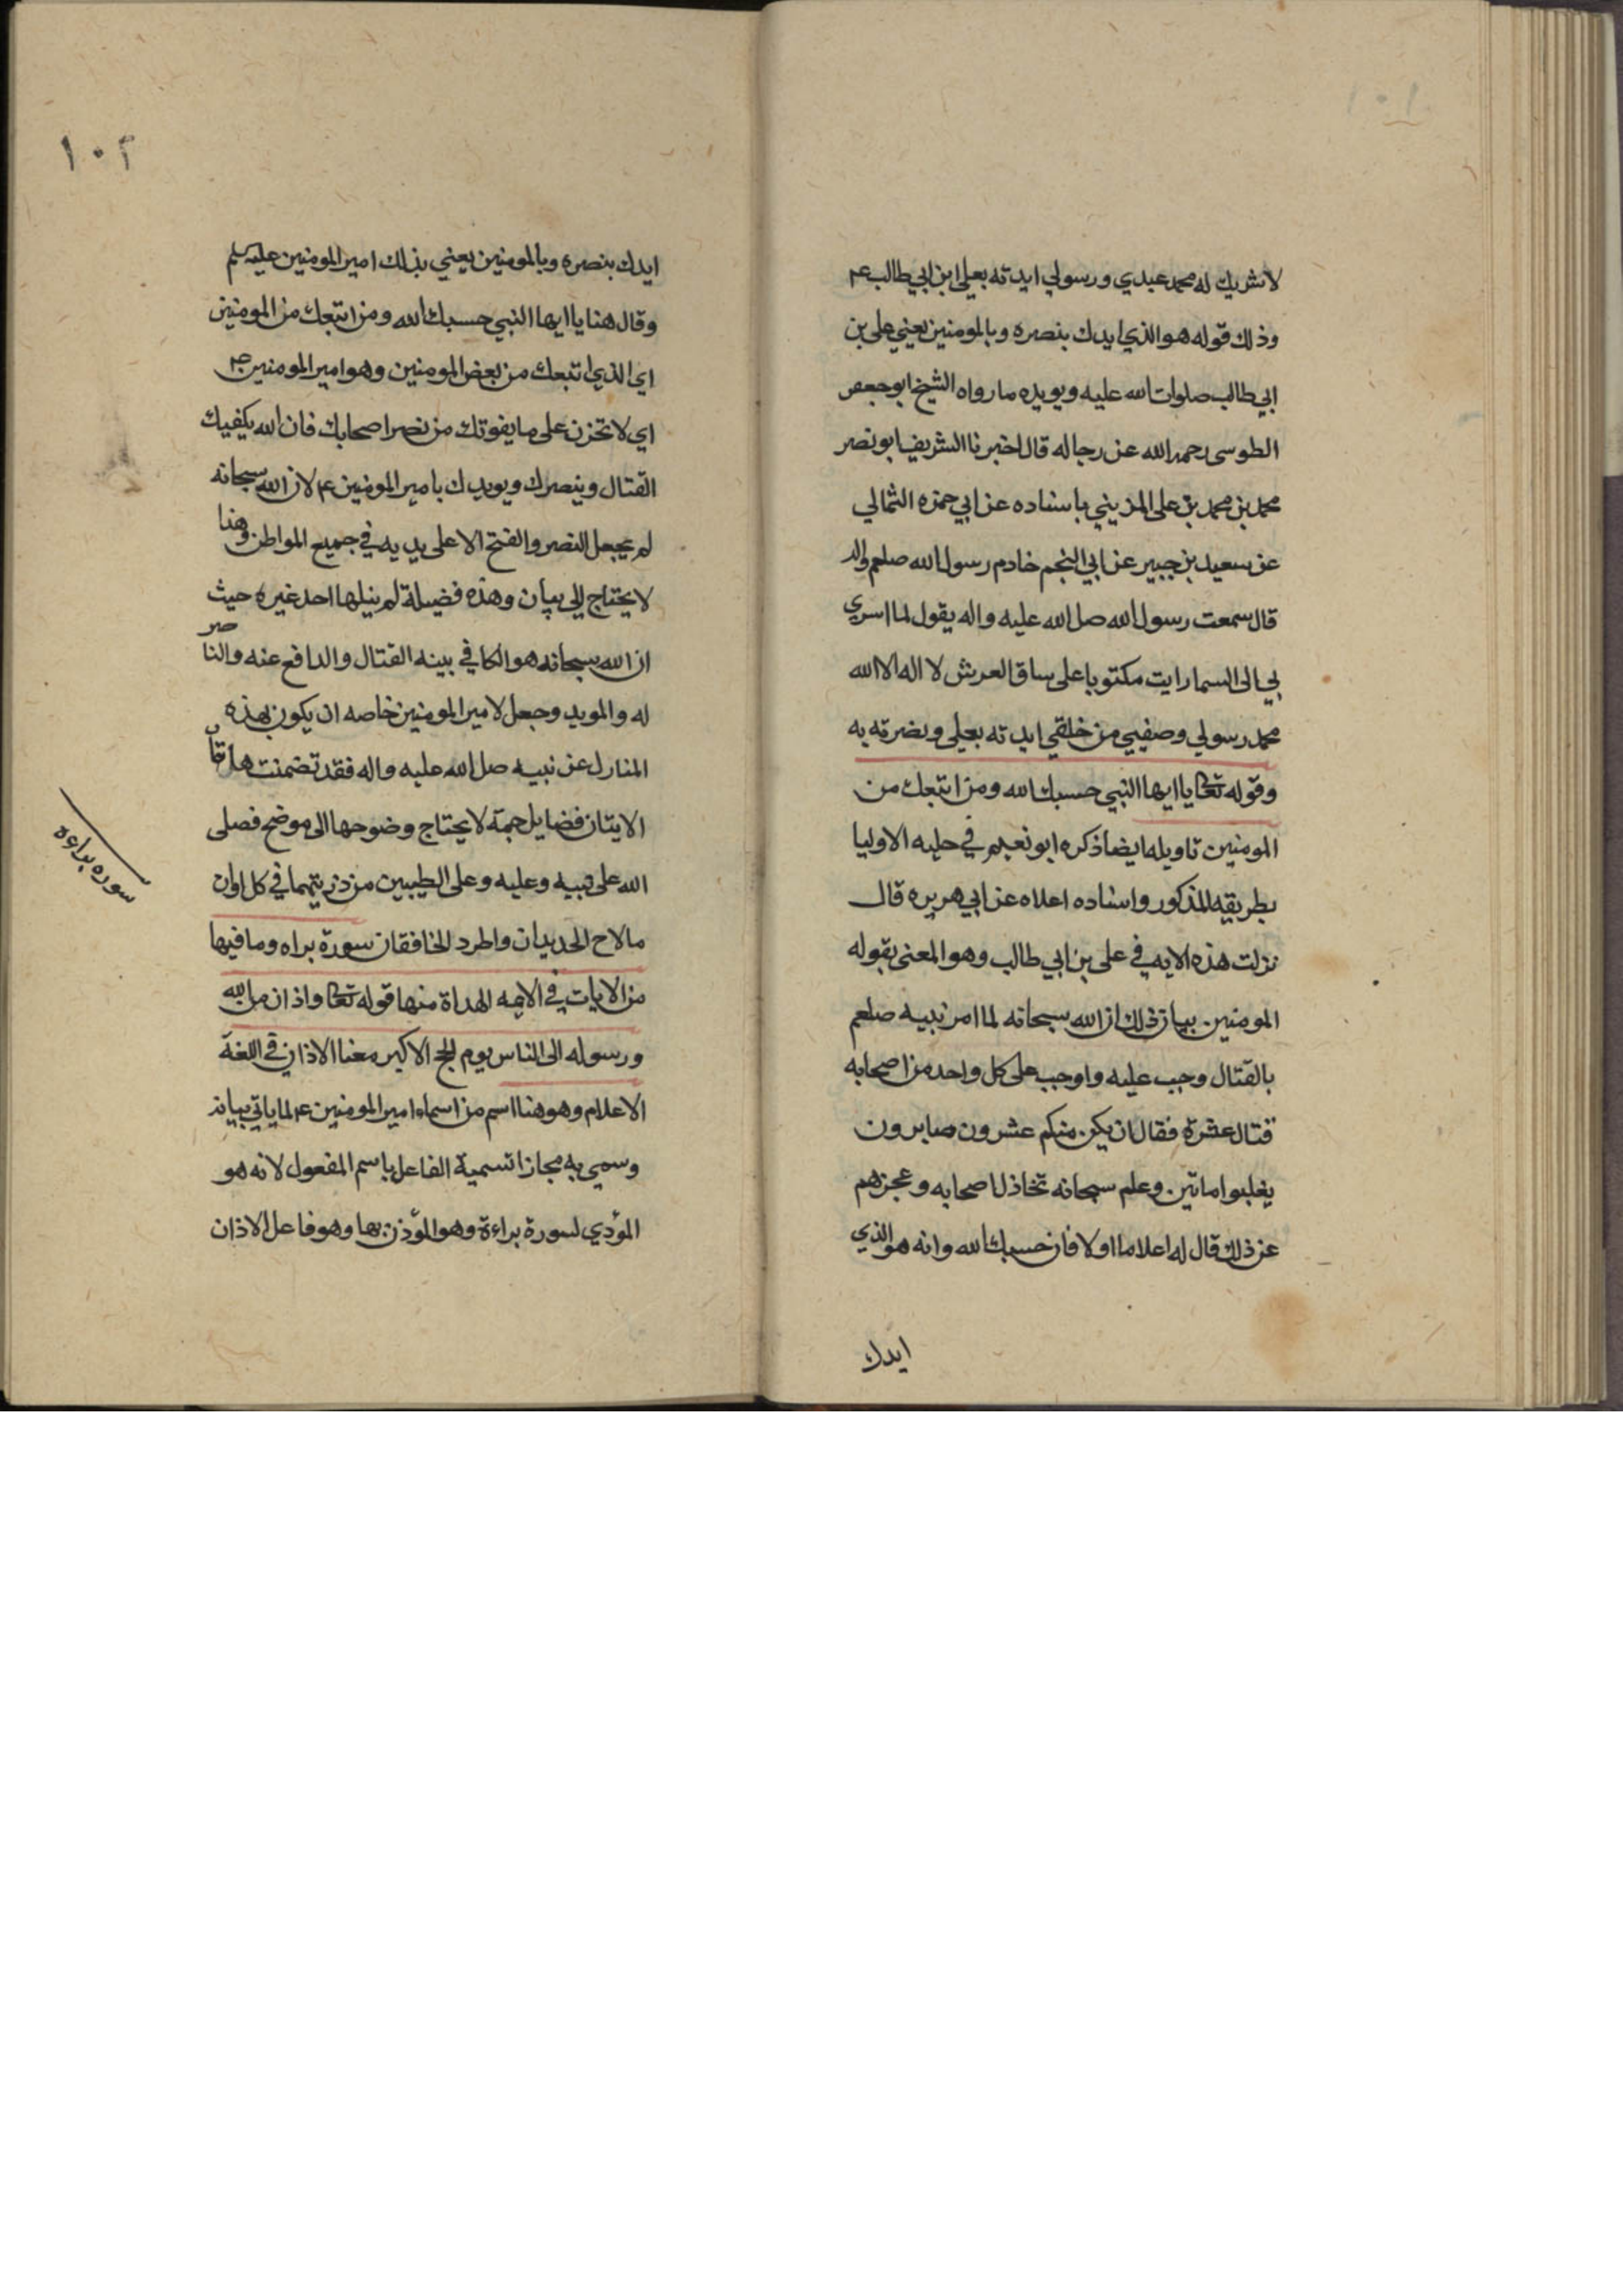 ١٠١
لا شريك له محمد عبدي ورسولي ايدته بعلي ابن ابي طالب ع
وذلك قوله هو الذي ايدك بنصره وبالمومنين يعني علي بن
ابي طالب صلوات الله عليه ويويده ما رواه الشيخ ابو جعفر
الطوسي رحمه الله عن رجاله قال اخبرنا الشريف ابو نصر
محمد بن محمد بن علي الزينبي باسناده عن ابي حمزه الثمالي
عن سعيد بن جبير عن ابي النجم خادم رسول الله صلعم واله
قال سمعت رسول الله صل الله عليه واله يقول لما اسري
بي الى السما رايت مكتوبا على ساق العرش لا اله الا الله
محمد رسولي وصفيي من خلقي ايدته بعلي ونصرته به
وقوله تعالى يا ايها النبي حسبك الله ومن اتبعك من
المومنين تاويله ايضا ذكره ابو نعيم في حليه الاوليا
بطريقه المذكور واسناده اعلاه عن ابي هريره قال
نزلت هذه الايه في علي بن ابي طالب وهو المعنى بقوله
المومنين بيان ذلك ان الله سبحانه لما امر نبيه صلعم
بالقتال وجب عليه واوجب على كل واحد من اصحابه
قتال عشرة فقال ان يكن منكم عشرون صابرون
يغلبوا ماتين وعلم سبحانه تخاذل اصحابه وعجزهم
عن ذلك قال له اعلاما اولا فان حسبك الله وانه هو الذي
ايدك
١٠٢
ايدك بنصره وبالمومنين يعني بذلك امير المومنين عليه سلم
وقال هنا يا ايها النبي حسبك الله ومن اتبعك من المومنين
اي الذي اتبعك من بعض المومنين وهو امير المومنين ع
اي لا تحزن على ما يفوتك من نصر اصحابك فان الله يكفيك
القتال وينصرك ويويدك بامير المومنين ع لان الله سبحانه
لم يجعل النصر والفتح الا على يديه في جميع المواطن وهذا
لا يحتاج الى بيان وهذه فضيلة لم ينيلها احد غيره حيث
ان الله سبحانه هو الكافي نبيه القتال والدافع عنه والناصر
له والمويد وجعل لامير المومنين خاصه ان يكون بهذه
المنازل عن نبيه صل الله عليه واله فقد تضمنت هاتان
الايتان فضايل جمة لا يحتاج وضوحها الى موضح فصلى
الله على نبيه وعليه وعلى الطيبين من ذريتهما في كل اوان
مالاح الجديدان واطرد الخافقان سورة براه وما فيها
من الايات في الايمه الهداة منها قوله تعالى واذان من الله
ورسوله الى الناس يوم الحج الاكبر معنا الاذان في اللغة
الاعلام وهو هنا اسم من اسماء امير المومنين ع لما ياتي بيانه
وسمي به مجازا تسمية الفاعل باسم المفعول لانه هو
المؤدي لسورة براءة وهو المؤذن بها وهو فاعل الاذان
سوره براءه